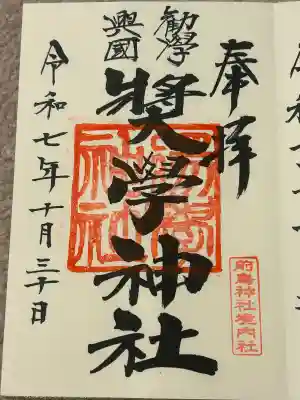 奉拝
勸學
興國
奬學神社
令和七年十月三十日
前鳥神社境内社